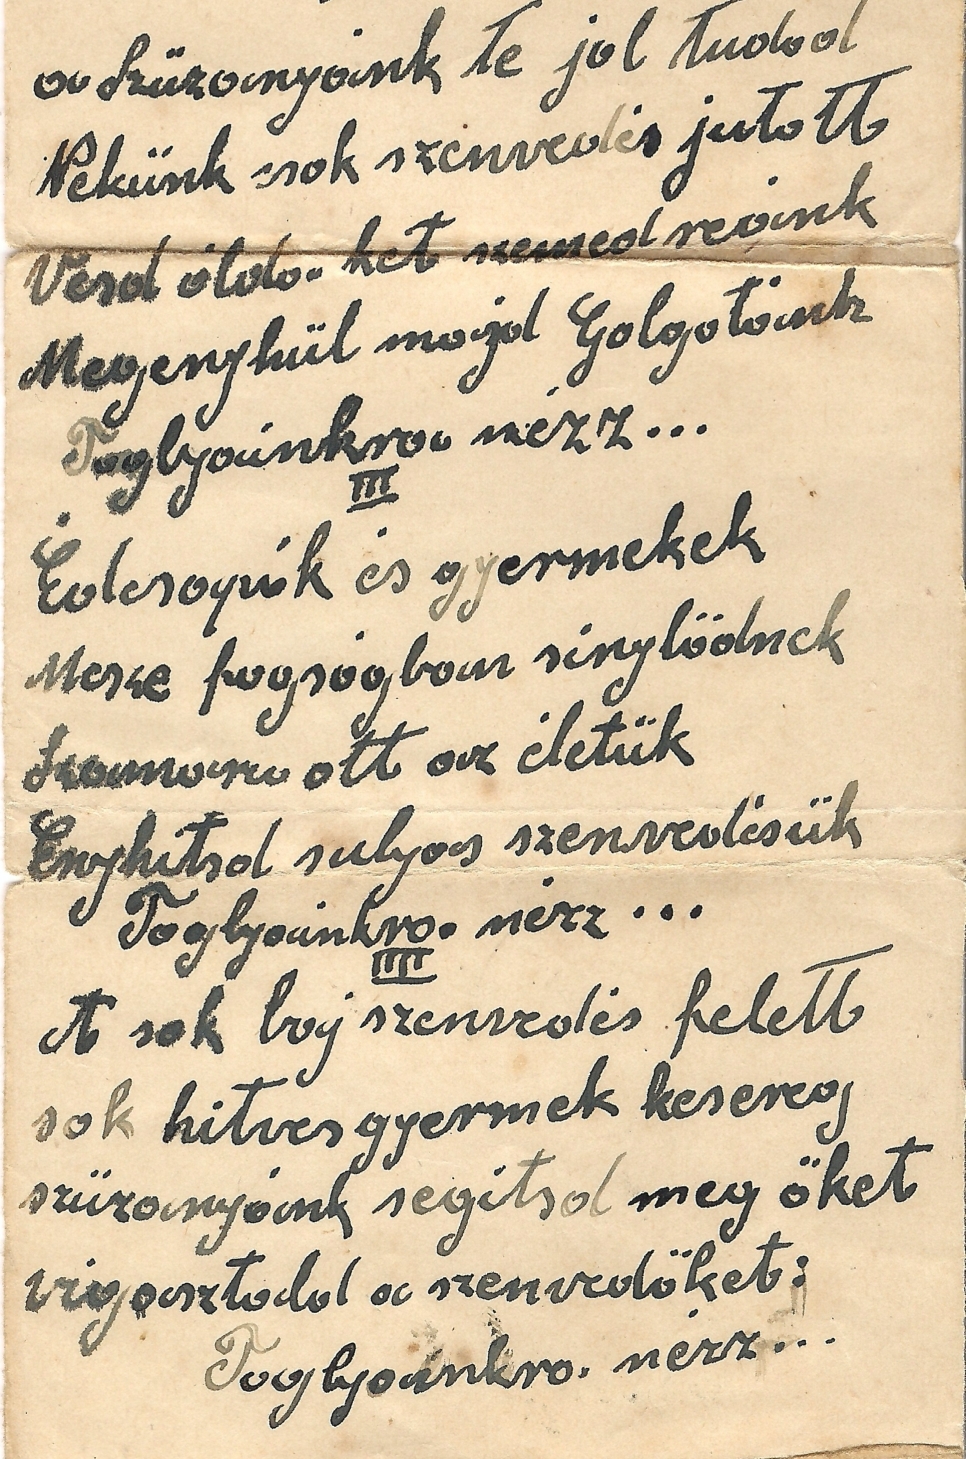 a Szüzanyánk te jol tudod
Nekünk sok szenvedés jutott
Vesd áldo. ket szemed reánk
Megenyhül majd Golgotánk
Foglyainkra nézz...
III
Édesapák és gyermekek
Messze fogságban sinylödnek
Szomoru ott az életük
Enyhitsd sulyos szenvedésük
Foglyainkra nézz...
IIII
A sok baj szenvedés felett
sok hitves gyermek kesereg
szüzanyánk segitsd meg öket
vigasztald a szenvedöket:
Foglyainkra. nézz...